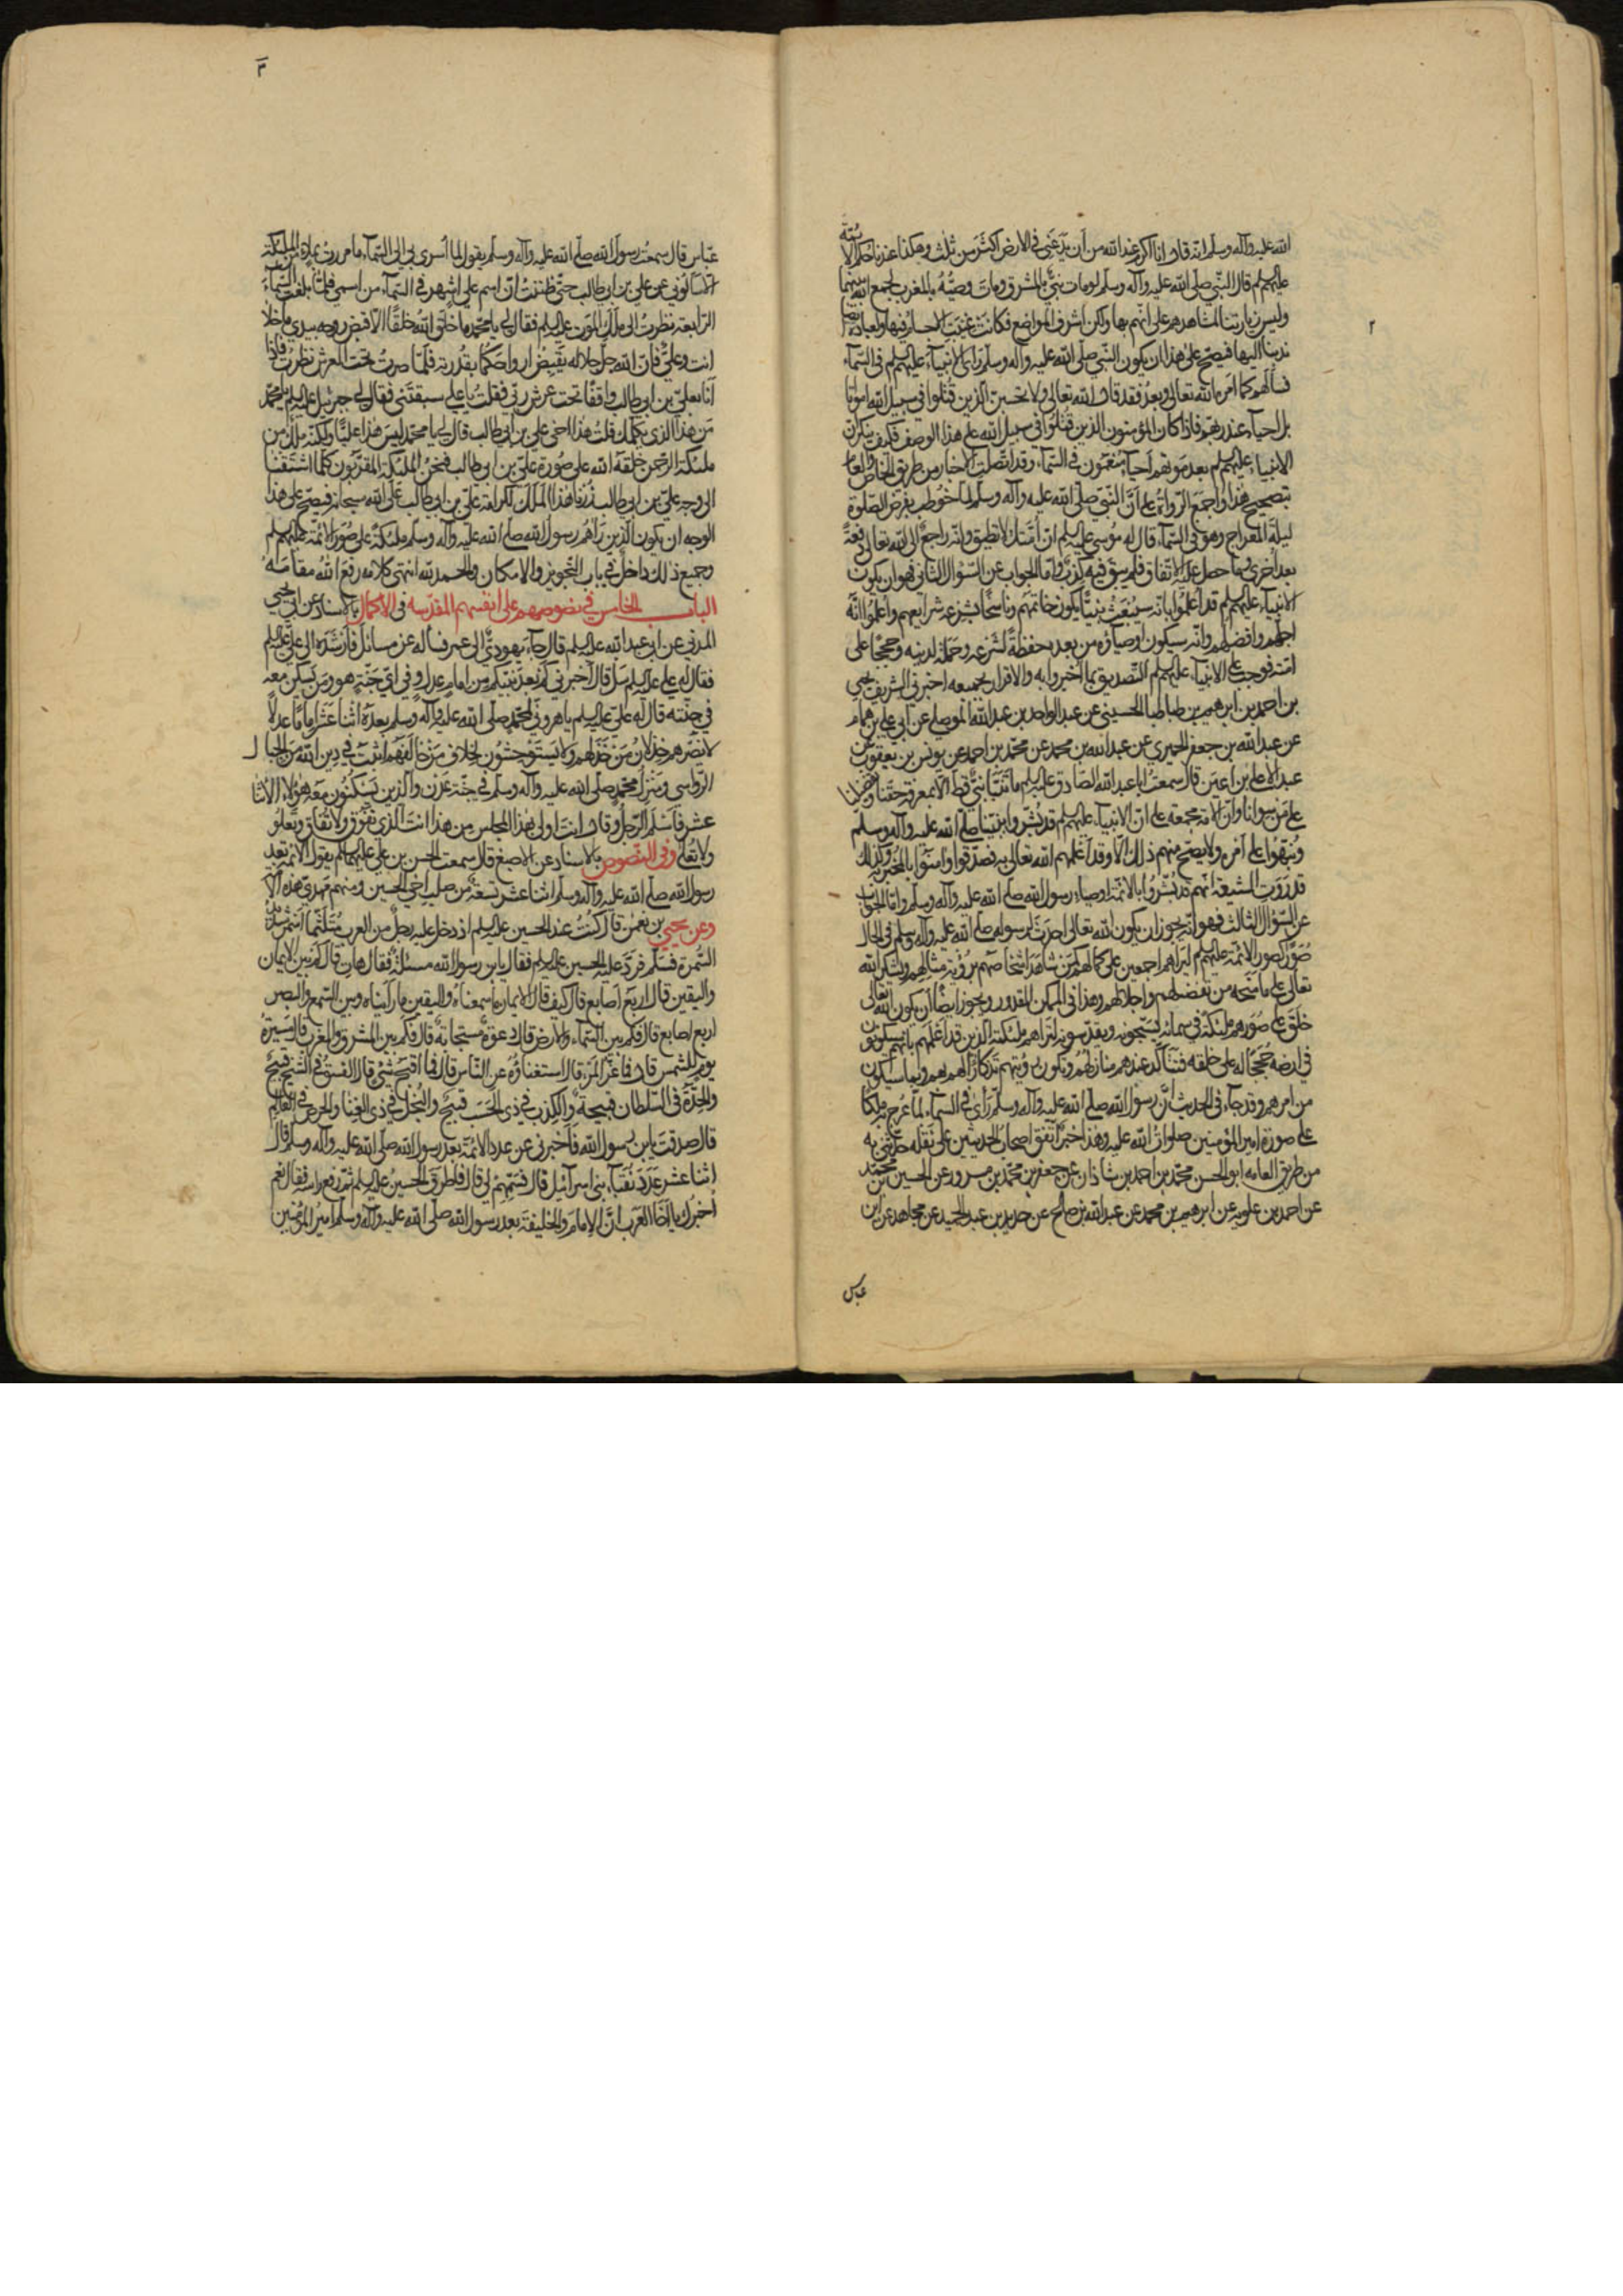 ٢
الله عليه وآله وسلم انه قال انا اكرم عند الله من أن يدعني في الارض اكثر من ثلث وهكذا عندنا حكم الائمة
عليهم السلم قال النبي صلى الله عليه وآله وسلم لو مات نبي بالمشرق ومات وصيه بالمغرب لجمع الله بينهما
وليس زيارتنا لمشاهدهم على انهم بها ولكن اشرف المواضع فكانت غيبت الاجساد فيها ولعبادة ايضا
ندبنا اليها فيصح على هذا ان يكون النبي صلى الله عليه وآله وسلم راى الانبياء عليهم السلم في السماء
فسألهم كما امره الله تعالى وبعد فقد قال الله تعالى ولا تحسبن الذين قتلوا في سبيل الله امواتا
بل احياء عند ربهم فاذا كان المؤمنون الذين قتلوا في سبيل الله على هذا الوصف فكيف ينكر ان
الانبياء عليهم السلم بعد موتهم احياء منعمون في السماء وقد اتصلت الاخبار من طريق الخاص والعام
بتصحيح هذا واجمع الرواة على أن النبي صلى الله عليه وآله وسلم لما خوطب بفرض الصلوة
ليلة المعراج وهو في السماء قال له موسى عليه السلم ان امتك لا تطيق وانه راجع الى الله تعالى دفعة
بعد اخرى وما حصل عليه الاتفاق فلم يبق فيه كذب واما الجواب عن السؤال الثاني فهو ان يكون
الانبياء عليهم السلم قد اعلموا بانه سيبعث نبيا يكون خاتمهم وناسخا بشرعه شرايعهم واعلموا انه
اجلهم وافضلهم وانه سيكون اوصياؤه من بعده حفظة لشرعه وحملة لدينه وحججا على
امته فوجب على الانبياء عليهم السلم التصديق بما اخبروا به والاقرار بجميعه اخبرني الشريف يحيى
بن احمد بن ابرهيم بن طباطبا الحسيني عن عبد الواحد بن عبد الله الموصلي عن ابي علي بن همام
عن عبد الله بن جعفر الحميري عن عبد الله بن محمد عن محمد بن احمد عن يونس بن يعقوب عن
عبد الاعلى بن اعين قال سمعت ابا عبد الله الصادق عليه السلم ما تنبأ نبي قط الا بمعرفة حقنا وتفضيلنا
على من سوانا وان الامة مجمعة على ان الانبياء عليهم السلم قد بشروا بنبينا صلى الله عليه وآله وسلم
ونبهوا على امره ولا يصح منهم ذلك الا وقد اعلمهم الله تعالى به فصدقوا وامنوا بالمخبر به وكذلك
قد روت الشيعة انهم قد بشروا بالائمة اوصياء رسول الله صلى الله عليه وآله وسلم واما الجواب
عن السؤال الثالث فهو انه يجوز ان يكون الله تعالى احدث لرسوله صلى الله عليه وآله وسلم في الحال
صورا كصور الائمة عليهم السلم ليراهم اجمعين على كمالهم كمن شاهد اشخاصهم برؤية مثالهم ويشكر الله
تعالى على ما منحه من تفضيلهم واجلالهم وهذا في الممكن المقدور ويجوز ايضا ان يكون الله تعالى
خلق على صورهم ملئكة في سمائه يسبحونه ويقدسونه لتراهم ملئكته الذين قد اعلمهم بانهم سيكونون
في ارضه حججا له على خلقه فتتأكد عندهم منازلهم وتكون رؤيتهم تذكارا لهم بهم وبما سيكون
من امرهم وقد جاء في الحديث ان رسول الله صلى الله عليه وآله وسلم رأى في السماء لما عرج به ملكا
على صورة امير المؤمنين صلوات الله عليه وهذا خبر اتفق اصحاب الحديثين على نقله حدثني به
من طريق العامه ابو الحسن محمد بن احمد بن شاذان عن جعفر بن محمد بن مسرور عن الحسين بن محمد
عن احمد بن علويه عن ابرهيم بن محمد عن عبد الله بن صالح عن جديد بن عبد الحميد عن مجاهد عن ابن
عباس
٣
عباس قال سمعت رسول الله صلى الله عليه وآله وسلم يقول لما اسرى بي الى السماء ما مررت بملاء من الملئكة
الا سألوني عن علي بن ابي طالب حتى ظننت ان اسم علي اشهر في السماء من اسمي فلما بلغت السماء
الرابعة نظرت الى ملك الموت عليه السلم فقال لي يا محمد ما خلق الله خلقا الا اقبض روحه بيدي ما خلا
انت وعلي فان الله جل جلاله يقبض ارواحكما بقدرته فلما صرت تحت العرش نظرت فاذا
انا بعلي بن ابي طالب واقفا تحت عرش ربي فقلت يا علي سبقتني فقال لي جبرئيل عليه السلم يا محمد
من هذا الذي يكلمك قلت هذا اخي علي بن ابي طالب قال لي يا محمد ليس هذا عليا ولكنه ملك من
ملئكة الرحمن خلقه الله على صورة علي بن ابي طالب فنحن الملئكة المقربون كلما اشتقنا
الى وجه علي بن ابي طالب زرنا هذا الملك لكرامة علي بن ابي طالب على الله سبحانه فيصح على هذا
الوجه ان يكون الذين رآهم رسول الله صلى الله عليه وآله وسلم ملئكة على صور الائمة عليهم السلم
وجميع ذلك داخل في باب التجويز والامكان والحمد لله انتهى كلامه رفع الله مقامه
الباب الخامس في نصوصهم على انفسهم المقدسه في الاكمال بالاسناد عن ابي يحيى
المدني عن ابي عبد الله عليه السلم قال جاء يهودي الى عمر فسأله عن مسائل فارشده الى علي عليه السلم
فقال له علي عليه السلم سل قال اخبرني كم بعد نبيكم من امام عدل وفي اي جنة هو ومن يسكن معه
في جنته قال له علي عليه السلم يا هروني لمحمد صلى الله عليه وآله وسلم بعده اثنا عشر اماما عدلا
لا يضرهم خذلان من خذلهم ولا يستوحشون لخلاف من خالفهم اثبت في دين الله من الجبال
الرواسي ومنزل محمد صلى الله عليه وآله وسلم في جنة عدن والذين يسكنون معه هؤلاء الاثنا
عشر فاسلم الرجل وقال انت اولى بهذا المجلس من هذا انت الذي تفوق ولا تفاق وتعلو
ولا تعلى وفي النصوص بالاسناد عن الاصبغ قال سمعت الحسن بن علي عليهما السلم يقول الائمة بعد
رسول الله صلى الله عليه وآله وسلم اثنا عشر تسعة من صلب اخي الحسين ومنهم مهدي هذه الامة
وعن يحيى بن نعمن قال كنت عند الحسين عليه السلم اذ دخل عليه رجل من العرب متلثما اسمر شديد
السمرة فسلم فرد عليه الحسين عليه السلم فقال يابن رسول الله مسئلة فقال هات قال كم بين الايمان
واليقين قال اربع اصابع قال كيف قال الايمان ما سمعناه واليقين ما رأيناه وبين السمع والبصر
اربع اصابع قال فكم بين السماء والارض قال دعوة مستجابة قال فكم بين المشرق والمغرب قال مسيرة
يوم للشمس قال فما عز المرء قال استغناؤه عن الناس قال فما اقبح شيء قال الفسق في الشيخ قبيح
والحدة في السلطان قبيحة والكذب في ذي الحسب قبيح والبخل في ذي الغنا والحرص في العالم
قال صدقت يابن رسول الله فاخبرني عن عدد الائمة بعد رسول الله صلى الله عليه وآله وسلم قال
اثنا عشر عدد نقباء بني اسرآئيل قال فسمهم لي قال فاطرق الحسين عليه السلم ثم رفع راسه فقال نعم
اخبرك يا اخا العرب ان الامام والخليفة بعد رسول الله صلى الله عليه وآله وسلم امير المؤمنين